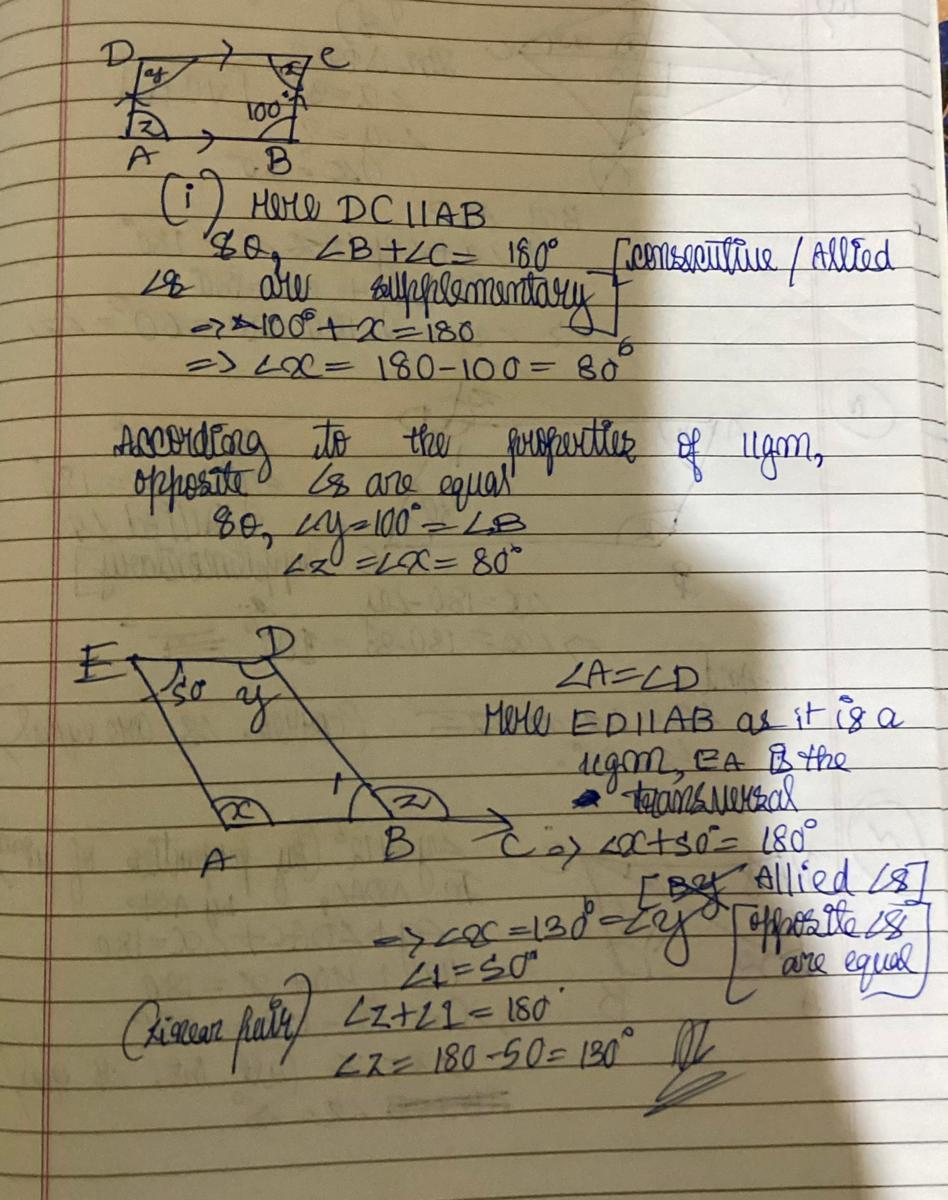 D C
y x
z 100°
A B
(i) Here DC || AB
So, ∠B + ∠C = 180° [consecutive / Allied
∠s are supplementary]
=> 100° + x = 180
=> ∠x = 180 - 100 = 80°
According to the properties of ||gm,
opposite ∠s are equal
So, ∠y = 100° = ∠B
∠z = ∠x = 80°
E D
50 y
x 1 z
A B C
∠A = ∠D
Here ED || AB as it is a
||gm, EA is the
transversal
=> ∠x + 50° = 180°
[By Allied ∠s]
=> ∠x = 130° = ∠y [opposite ∠s
are equal]
∠1 = 50°
(Linear pair) ∠z + ∠1 = 180°
∠z = 180 - 50 = 130°